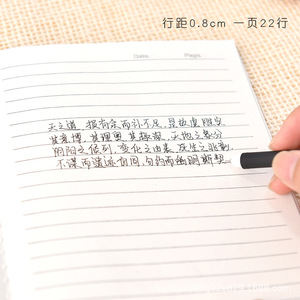 行距0.8cm 一页22行
Date. Page.
天之道，损有余而补不足，是故虚胜实
其意博，其理奥，其趣深，天地之象分
阴阳之候列，变化之由表，死生之兆彰
不谋而遗迹自同，勿约而幽明斯契